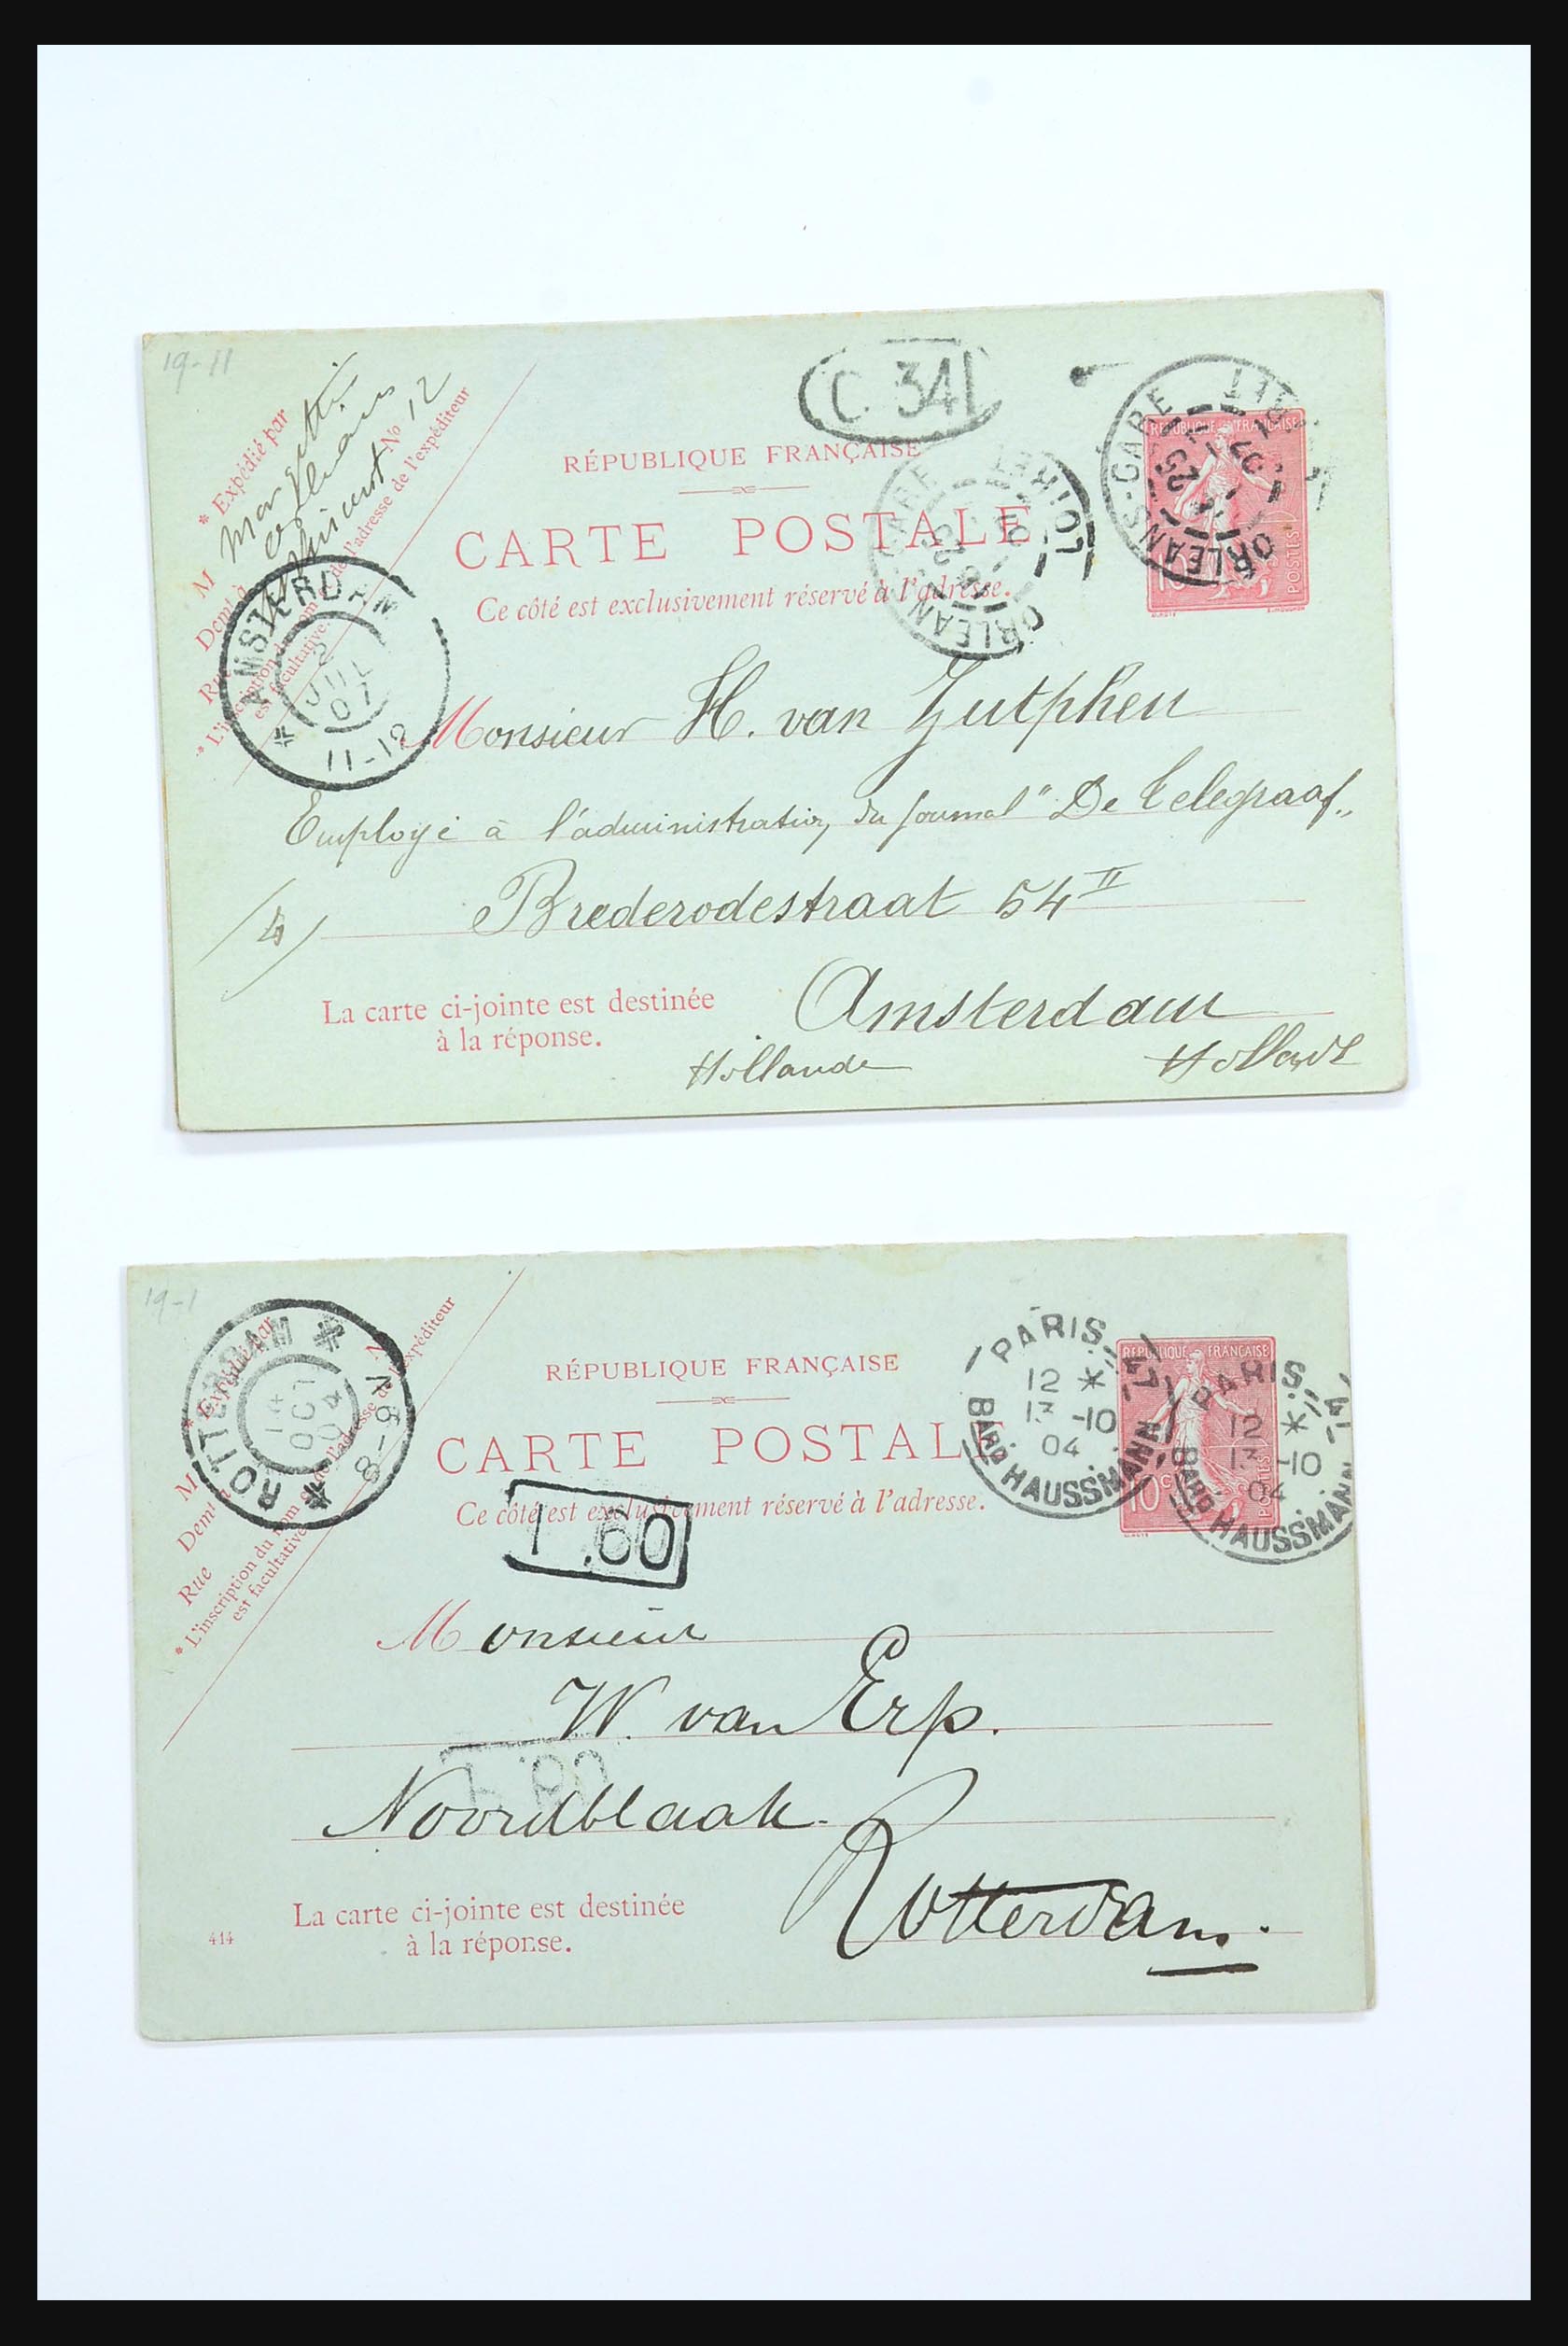 19-11
* Expédié par
M
Demt à
Rue
Orléans
No 12
* L'inscription du nom et de l'adresse de l'expéditeur
est facultative.
C 34
RÉPUBLIQUE FRANÇAISE
CARTE POSTALE
Ce côté est exclusivement réservé à l'adresse.
ORLEANS-GARE
LOIRET
RÉPUBLIQUE FRANÇAISE
POSTES
10
ORLEANS-GARE
AMSTERDAM
2
JUL
07
11-12
Monsieur H. van Zutphen
Employé à l'administration du Journal "De Telegraaf"
Brederodestraat 54 II
Amsterdam
La carte ci-jointe est destinée
à la réponse.
Hollande
19-1
* Expédié par
M
Demt à
Rue
* L'inscription du nom et de l'adresse de l'expéditeur
est facultative.
ROTTERDAM
14
OCT
04
8-9V
RÉPUBLIQUE FRANÇAISE
CARTE POSTALE
Ce côté est exclusivement réservé à l'adresse.
PARIS 47
12 *
13 -10
04
BARD HAUSSMANN
RÉPUBLIQUE FRANÇAISE
10c
POSTES
PARIS 47
12 *
13 -10
04
BARD HAUSSMANN
.60
Monsieur
W. van Erp.
Noordblaak.
Rotterdam.
La carte ci-jointe est destinée
à la réponse.
414